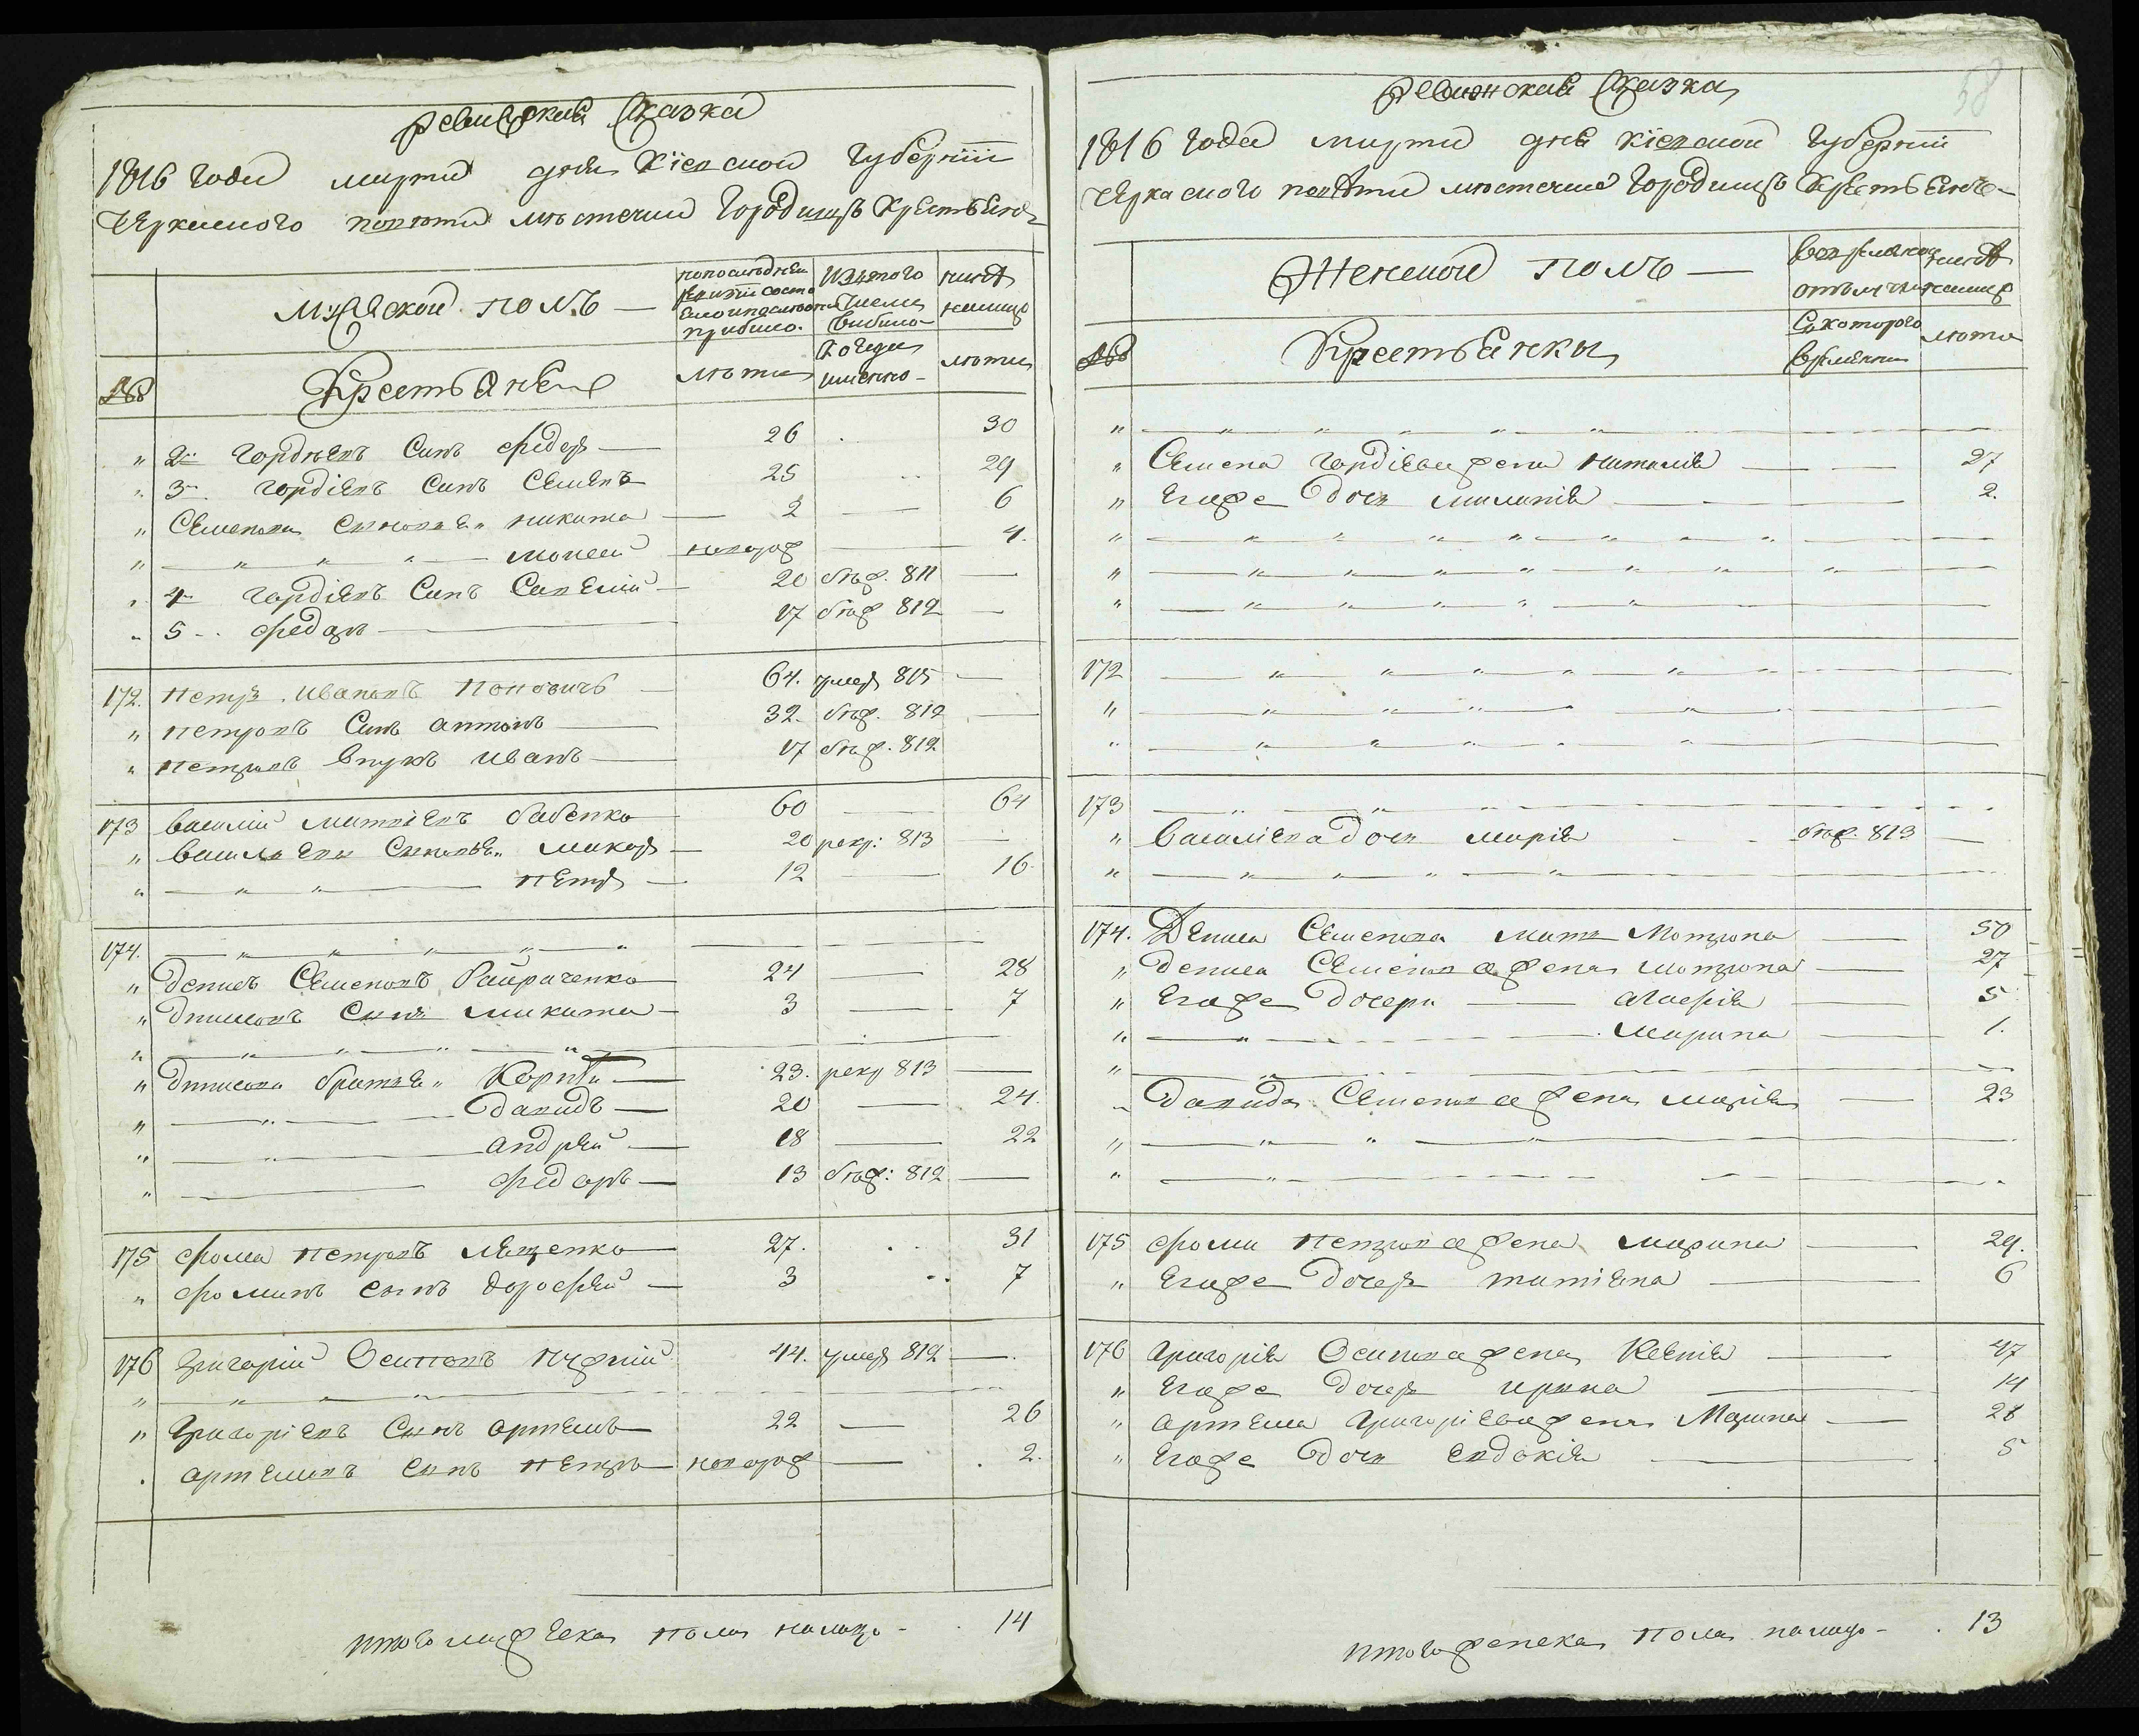 Ревижская Сказка
1816 года марта дня Кіевской Губерніи
Черкаского повета местечка Городища Крестьяне
Мужской полъ
По последней ревизіи состояло и после оной прибыло
Изъ того числа выбыло
Ныне налицо
Крестьяне
лета
Когда именно
лета
" 2й Гордеевъ Синъ Федоръ — 26 . 30
" 3й Гордіевъ Синъ Семенъ 25 .. 29
" Семенови Синовья " Никита — 2 — 6
" — " " " — Моисей новорож — 4.
" 4й Гордіевъ Синъ Савелій — 20 беж. 811 —
" 5.. Федоръ — 17 беж 812 —
172. Петръ Ивановъ Поповичъ — 64. умеръ 815 —
" Петровъ Синъ Антонъ — 32. беж. 812 —
" Петровъ Внукъ Иванъ — 17 беж. 812
173 Василій Матвіевъ Бабенко — 60 — 64
" Васильеви Синовья " Макаръ — 20 рекр: 813 —
" — " " — Петръ — 12 — 16.
174. — " " " " "
" Денисъ Семеновъ Байраченко — 24 — 28
" Динисовъ Синъ Микита — 3 — 7
" — " " " "
" Динисови братья " Корней — 23. рекр 813 —
" — " — Давидъ — 20 — 24.
" — " — Андрей — 18 — 22
" — Федоръ — 13 беж: 812 —
175 Фома Петровъ Лященко — 27. .. 31
" Фоминъ Синъ Дорофей — 3 .. 7
176 Григорій Осиповъ 44. умеръ 812 —
" — " — "
" Григоріевъ Синъ Артемъ — 22 — 26
. Артемовъ Синъ Петръ — новорож — . 2.
Итого мужеска пола налицо - . 14
58
Ревижская Сказка
1816 года марта дня Кіевской Губерніи
Черкаского повета местечка Городища Крестьяне
Женской полъ —
Во временной отлучке
Ныне налицо
Крестьянки
Съ которого времени
лета
" — " " " " "
" Семена Гордіева жена Наталія — — 27
" Егоже дочь Миланія — 2.
" — " " " " " " "
" — " " " " " " "
" — " " " " "
172 — " " " " " "
" — " " " "
" — " " " "
173 — " "
" Василіева дочь Марія - - беж. 813 —
" — " " " "
174. Дениса Семенова мать Мотрона — 50
" Дениса Семенова жена Мотрона — 27
" Егоже дочери — Агафія — 5
" — " — Марина — 1.
" — "
" Давида Семенова жена Марія — 23
" — " " "
" — "
175 Фоми Петрова жена Марина — 29.
" Егоже дочеръ Татіяна — 6
176 Григорія Осипова жена Ксенія — 47
" Егоже дочеръ Ирина — 14
" Артема Григоріева жена Марина — 28
" Егоже дочь Евдокія — 5
Итого женска пола налицо - . 13